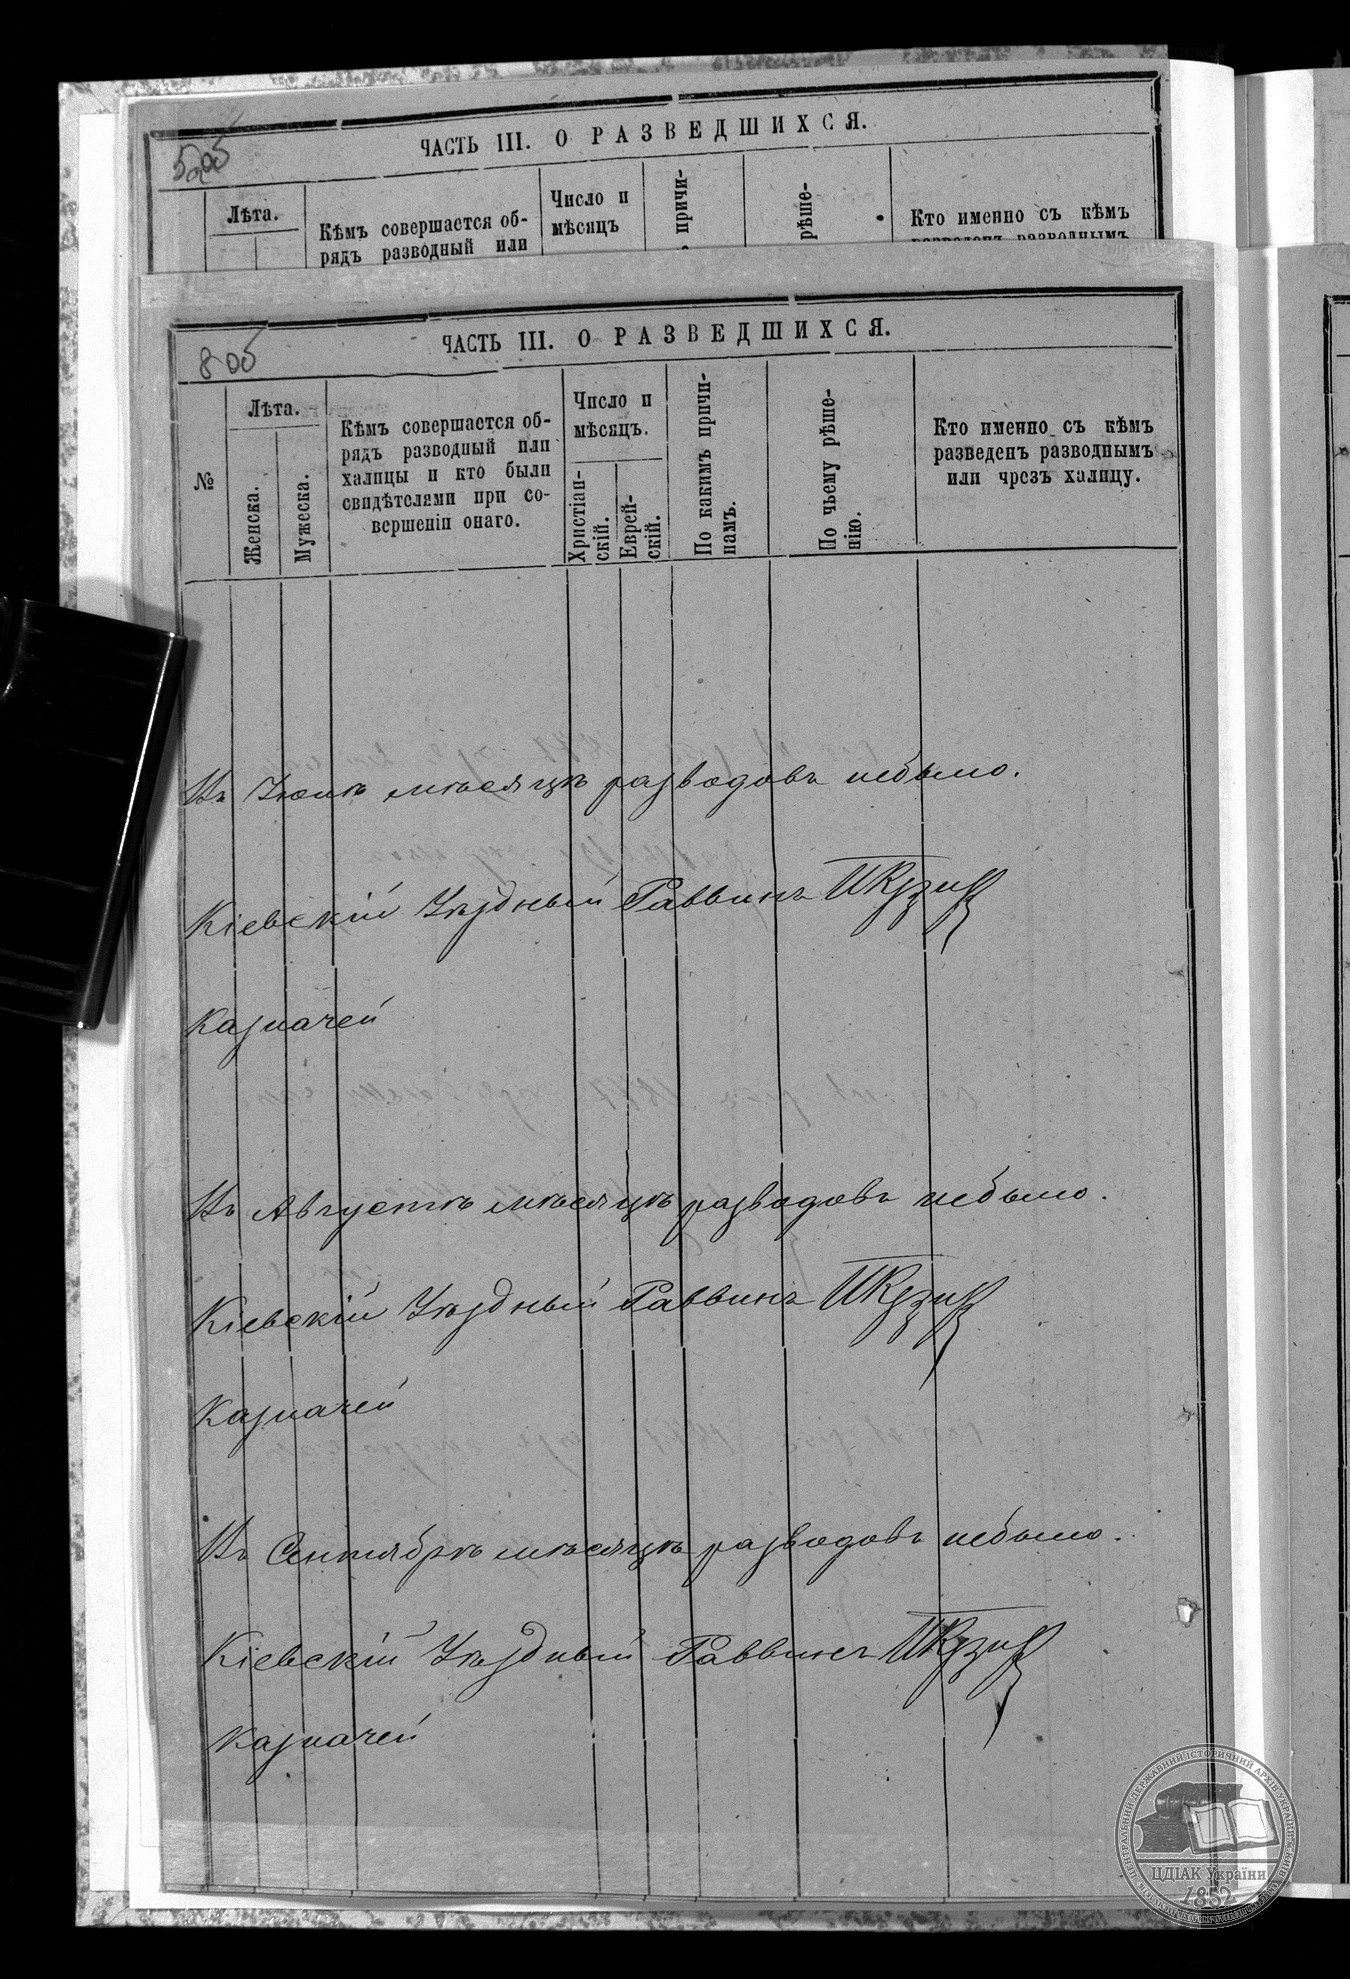 5об
ЧАСТЬ III. О РАЗВЕДШИХСЯ.
Лѣта.
Кѣмъ совершается об-
рядъ разводный или
Число и
мѣсяцъ
причи-
рѣше-
Кто именно съ кѣмъ
разведенъ разводнымъ
8об
ЧАСТЬ III. О РАЗВЕДШИХСЯ.
№
Лѣта.
Женска.
Мужеска.
Кѣмъ совершается об-
рядъ разводный или
халицы и кто были
свидѣтелями при со-
вершеніи онаго.
Число и
мѣсяцъ.
Христіан-
скій.
Еврей-
скій.
По какимъ причи-
намъ.
По чьему рѣше-
нію.
Кто именно съ кѣмъ
разведенъ разводнымъ
или чрезъ халицу.
Въ Іюлѣ мѣсяцѣ разводовъ небыло.
Кіевскій Уѣздный Раввинъ
Казначей
Въ Августѣ мѣсяцѣ разводовъ небыло.
Кіевскій Уѣздный Раввинъ
Казначей
Въ Сентябрѣ мѣсяцѣ разводовъ небыло.
Кіевскій Уѣздный Раввинъ
Казначей
ЦЕНТРАЛЬНИЙ ДЕРЖАВНИЙ ІСТОРИЧНИЙ АРХІВ УКРАЇНИ
ЦДІАК України
1852